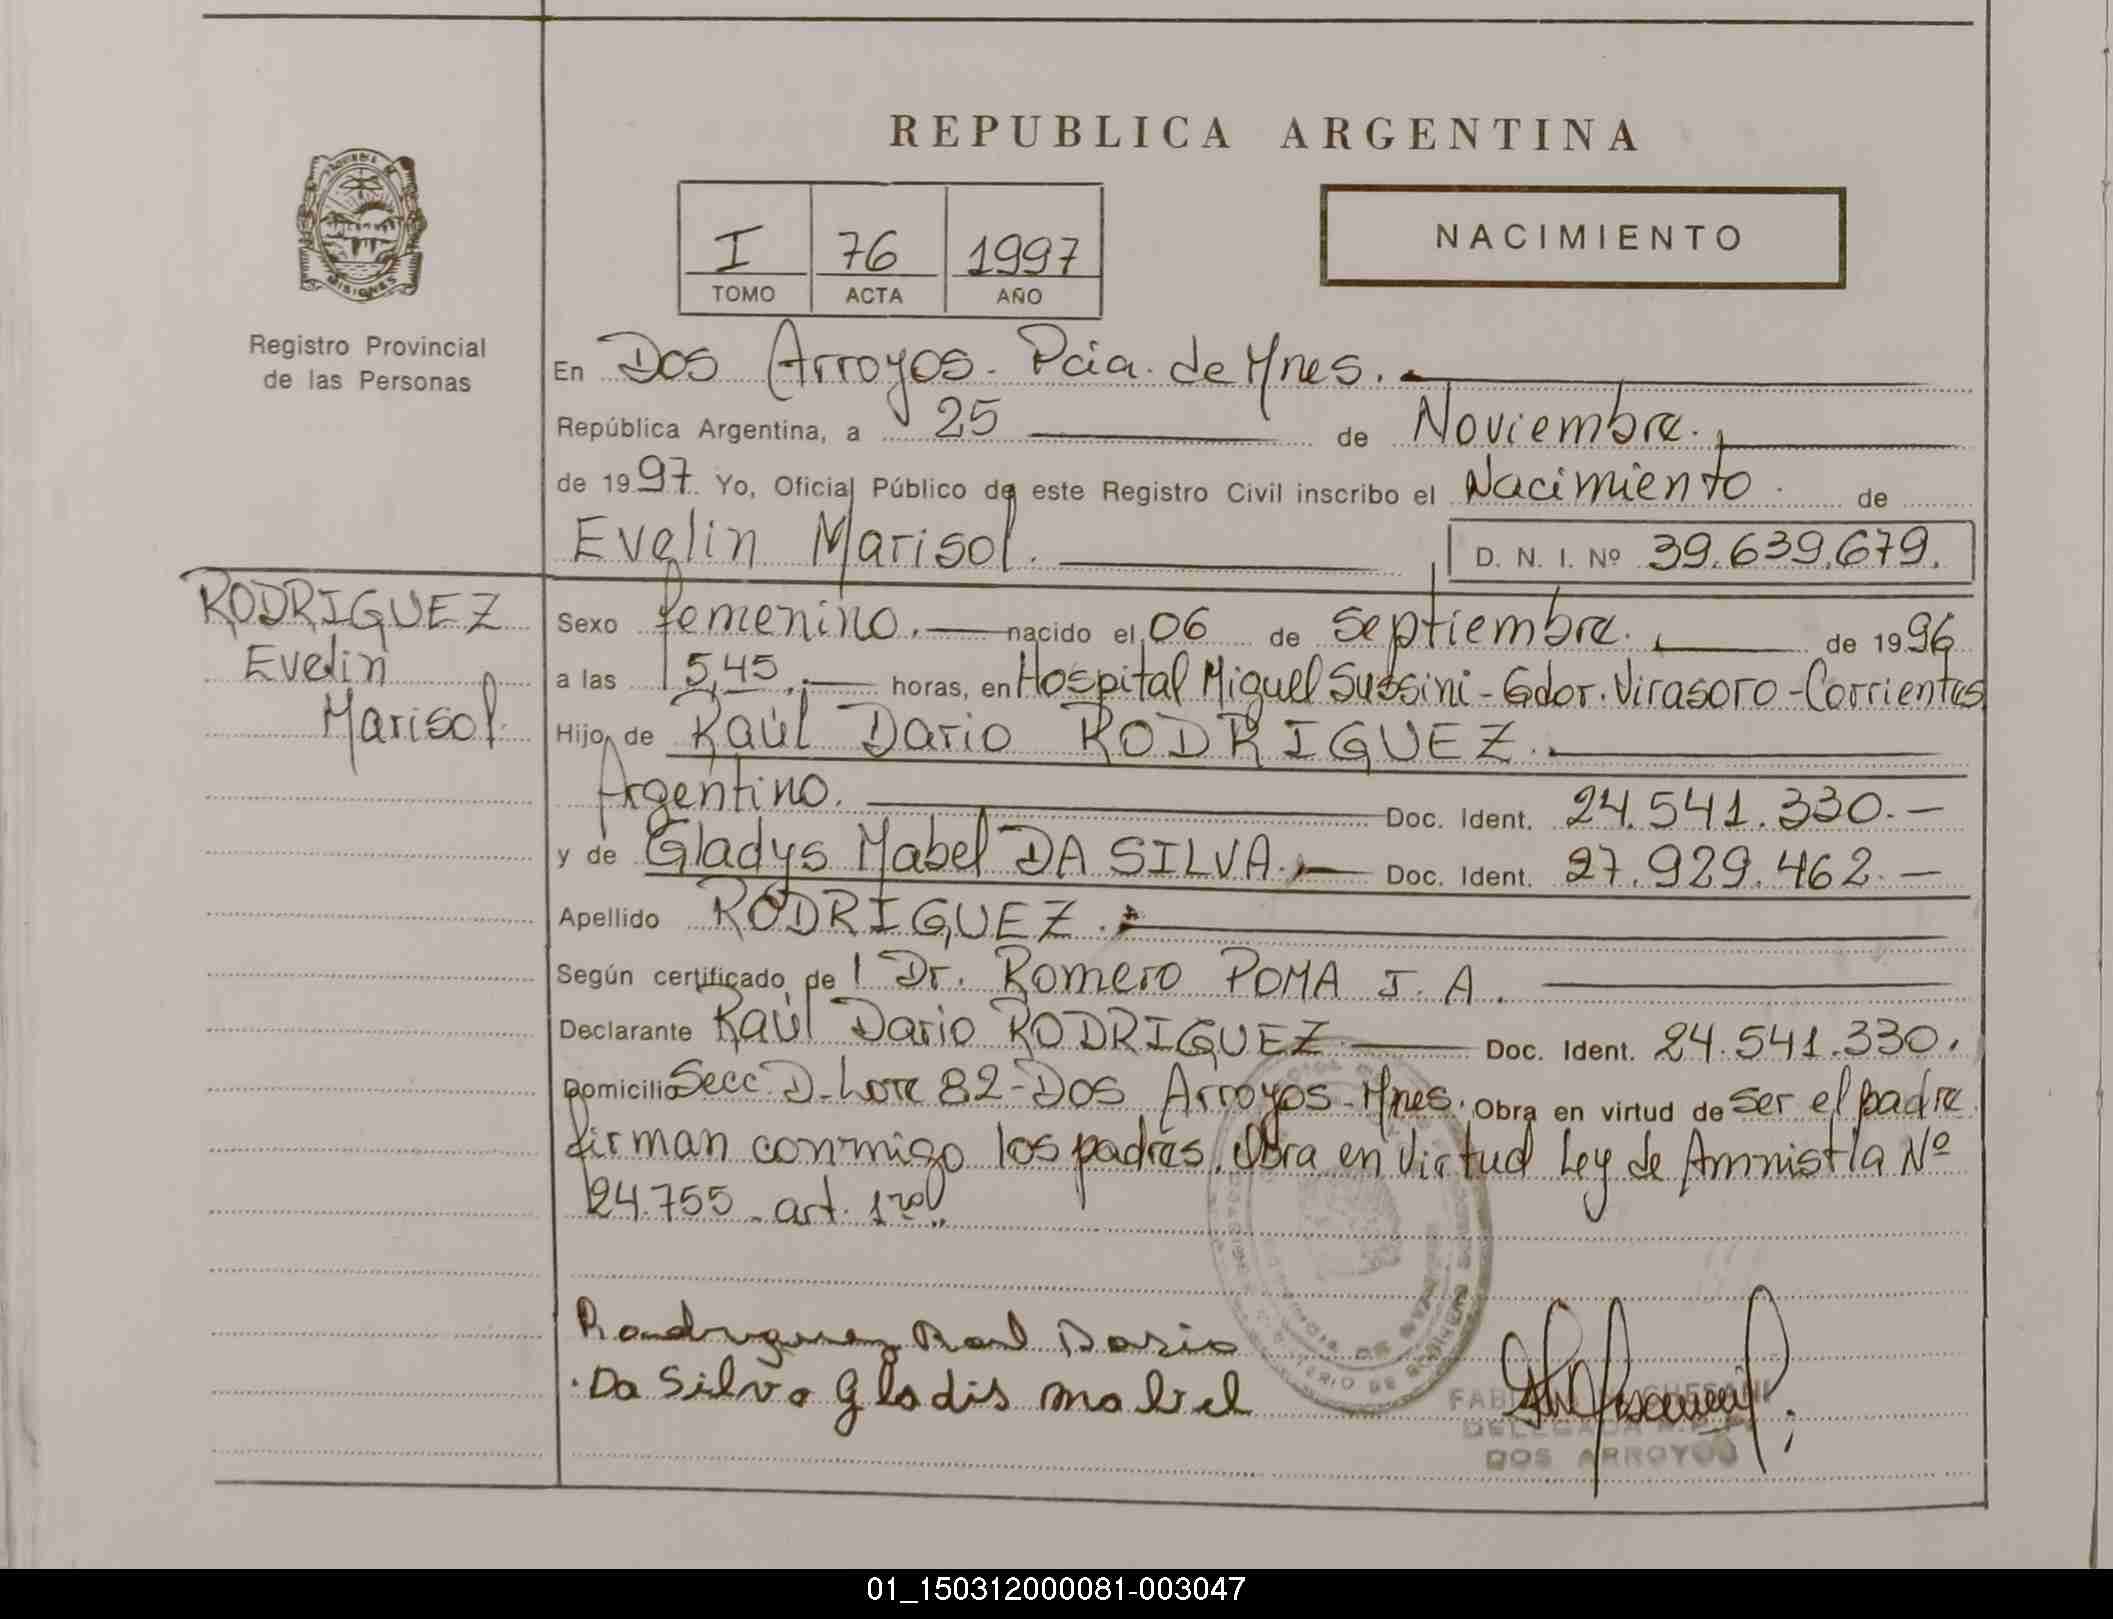 REPUBLICA ARGENTINA
NACIMIENTO
I 76 1997
TOMO ACTA AÑO
MISIONES
Registro Provincial
de las Personas
En Dos Arroyos. Pcia. de Mnes.
República Argentina, a 25 de Noviembre.
de 1997. Yo, Oficial Público de este Registro Civil inscribo el Nacimiento. de
Evelin Marisol. D. N. I. Nº 39.639.679.
RODRIGUEZ
Evelin
Marisol.
Sexo femenino. nacido el 06 de Septiembre. de 1996
a las 15,45. horas, en Hospital Miguel Sussini - Gdor. Virasoro - Corrientes
Hijo de Raúl Dario RODRIGUEZ.
Argentino. Doc. Ident. 24.541.330.-
y de Gladys Mabel DA SILVA.- Doc. Ident. 27.929.462.-
Apellido RODRIGUEZ.
Según certificado de l Dr. Romero POMA J. A.
Declarante Raúl Dario RODRIGUEZ Doc. Ident. 24.541.330.
Domicilio Secc. D. Lote 82 - Dos Arroyos - Mnes. Obra en virtud de ser el padre
firman conmigo los padres. Obra en virtud Ley de Amnistía Nº
24.755 - art. 1ro.
Rodriguez Raul Dario
Da Silva Gladis mabel
DELEGADA
DOS ARROYOS
01_150312000081-003047